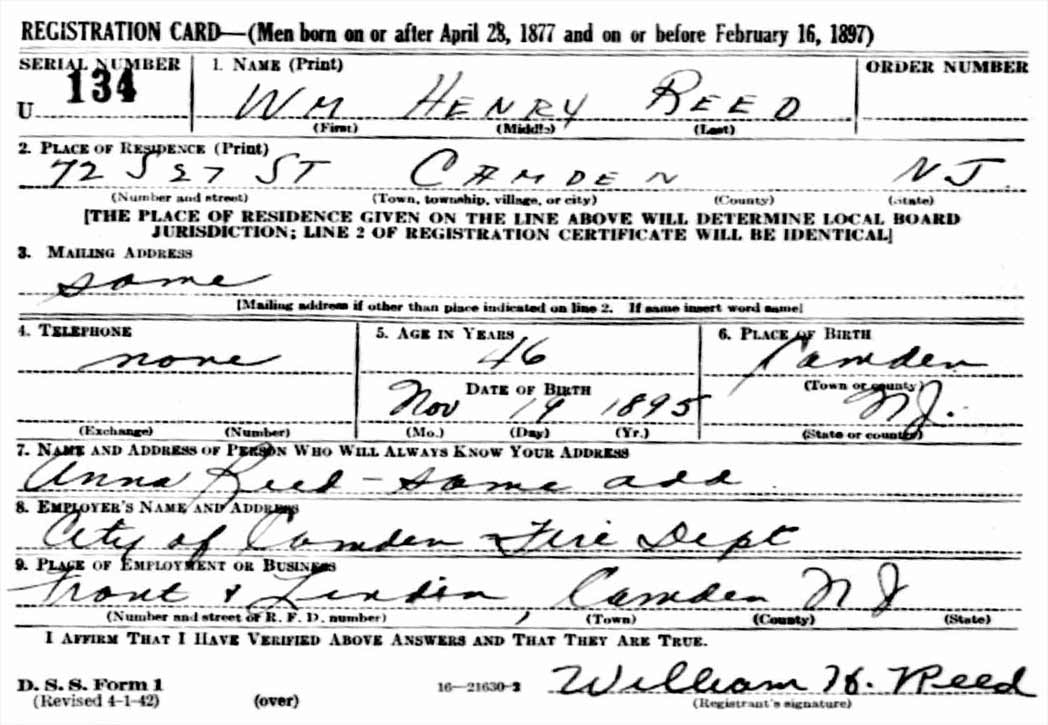 REGISTRATION CARD—(Men born on or after April 28, 1877 and on or before February 16, 1897)
SERIAL NUMBER 1. NAME (Print) ORDER NUMBER
U 134 WM HENRY REED
(First) (Middle) (Last)
2. PLACE OF RESIDENCE (Print)
72 S 27 ST CAMDEN NJ
(Number and street) (Town, township, village, or city) (County) (State)
[THE PLACE OF RESIDENCE GIVEN ON THE LINE ABOVE WILL DETERMINE LOCAL BOARD
JURISDICTION; LINE 2 OF REGISTRATION CERTIFICATE WILL BE IDENTICAL]
3. MAILING ADDRESS
same
[Mailing address if other than place indicated on line 2. If same insert word same]
4. TELEPHONE 5. AGE IN YEARS 6. PLACE OF BIRTH
none 46 Camden
DATE OF BIRTH (Town or county)
Nov 19 1895 NJ.
(Exchange) (Number) (Mo.) (Day) (Yr.) (State or country)
7. NAME AND ADDRESS OF PERSON WHO WILL ALWAYS KNOW YOUR ADDRESS
Anna Reed - same add
8. EMPLOYER'S NAME AND ADDRESS
City of Camden Fire Dept
9. PLACE OF EMPLOYMENT OR BUSINESS
Front & Linden, Camden NJ
(Number and street or R. F. D. number) (Town) (County) (State)
I AFFIRM THAT I HAVE VERIFIED ABOVE ANSWERS AND THAT THEY ARE TRUE.
D. S. S. Form 1
(Revised 4-1-42) (over) 16—21630-2 William H. Reed
(Registrant's signature)